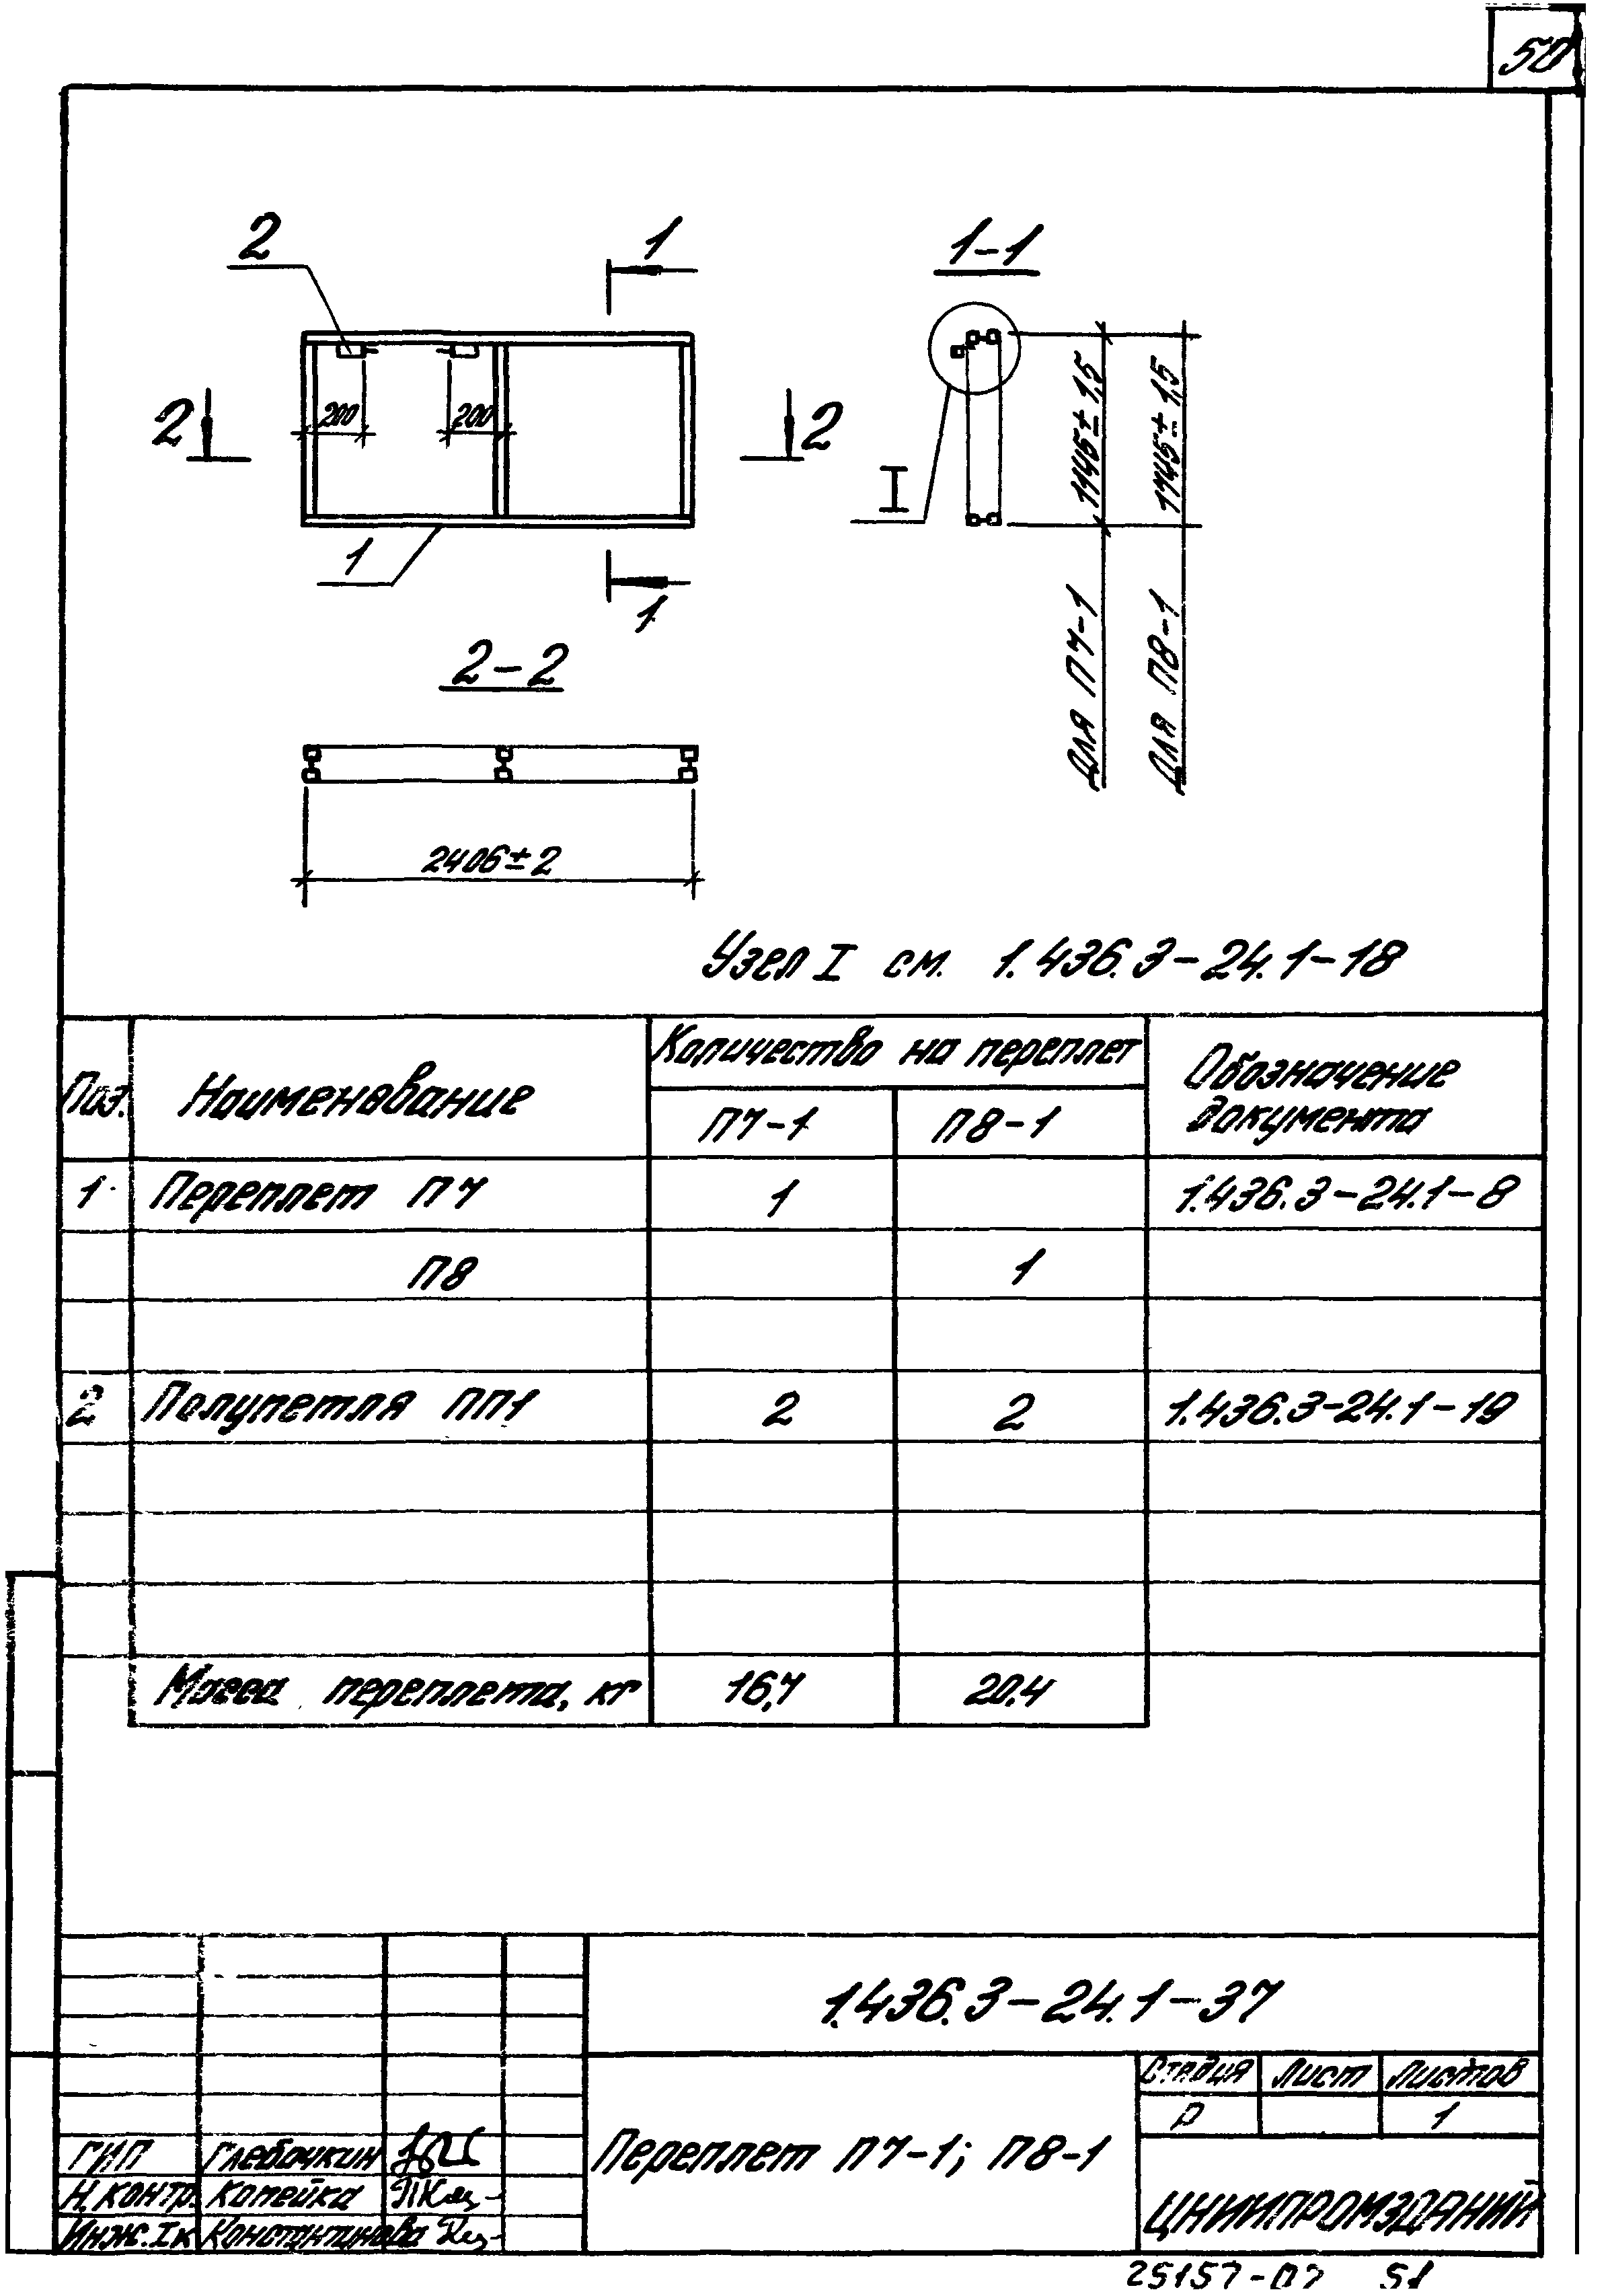 50
2
1
1-1
200
200
2
2
I
1
1
1145±1,5
1745±1,5
для П7-1
для П8-1
2-2
2406±2
Узел I см. 1.436.3-24.1-18
Поз.
Наименование
Количество на переплет
Обозначение
документа
П7-1
П8-1
1 Переплет П7 1 1.436.3-24.1-8
П8 1
2 Полупетля ПП1 2 2 1.436.3-24.1-19
Масса переплета, кг 16,7 20,4
1.436.3-24.1-37
Переплет П7-1; П8-1
Стадия Лист Листов
Р 1
ЦНИИПРОМЗДАНИЙ
ГИП Глебочкин
Н.контр. Копейка
Инж.Iк Константинова
25157-07 51